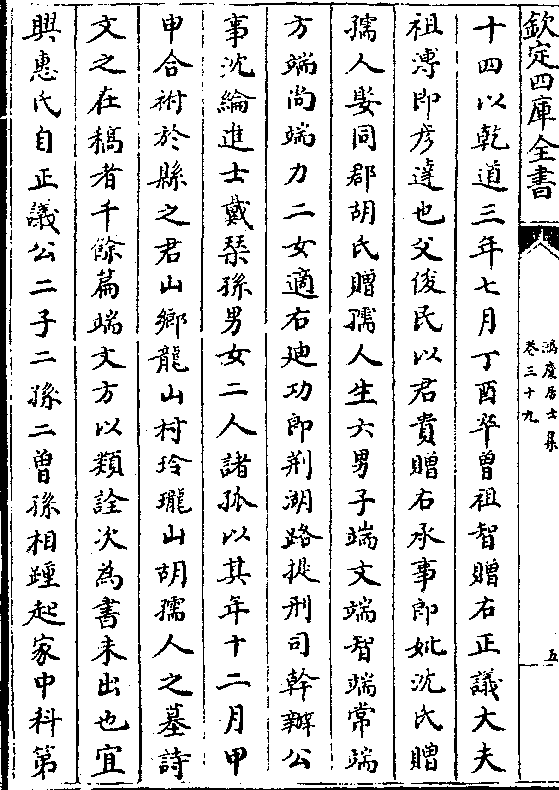 欽定四庫全書
鴻慶居士集
卷三十九
五
十四以乾道三年七月丁酉卒曾祖智贈右正議大夫
祖溥即彦達也父俊民以君貴贈右承事郎妣沈氏贈
孺人娶同郡胡氏贈孺人生六男子端文端智端常端
方端尚端力二女適右廸功郎荆湖路提刑司幹辦公
事沈綸進士戴琹孫男女二人諸孤以其年十二月甲
申合祔於縣之君山鄉龍山村玲瓏山胡孺人之墓詩
文之在稿者千餘篇端文方以類詮次為書未出也宜
興惠氏自正議公二子二孫二曽孫相踵起家中科第